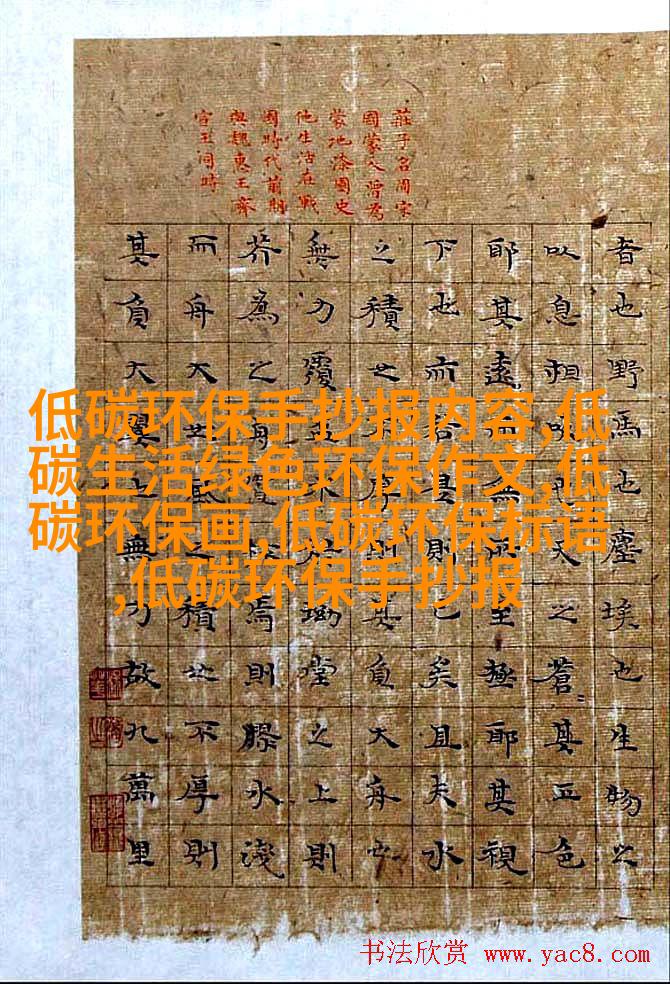 莊子名周宋
國蒙人曾為
蒙地漆園史
他生活在戰
國時代前期
與魏惠王齊
宣王同時
者也野馬也塵埃也生物之
以息相吹也天之蒼〻其正色
耶其遠而無所至極耶其視
下也而若是則已矣且夫水
之積也不厚則其負大舟也
無力覆盃水於坳堂之上則
芥為之舟杯焉則膠水淺
而舟大也之積也不厚則
其負大翼也無力故九萬里
低碳环保手抄报内容,低
碳生活绿色环保作文,低
碳环保画,低碳环保标语
,低碳环保手抄报
书法欣赏 www.yac8.com